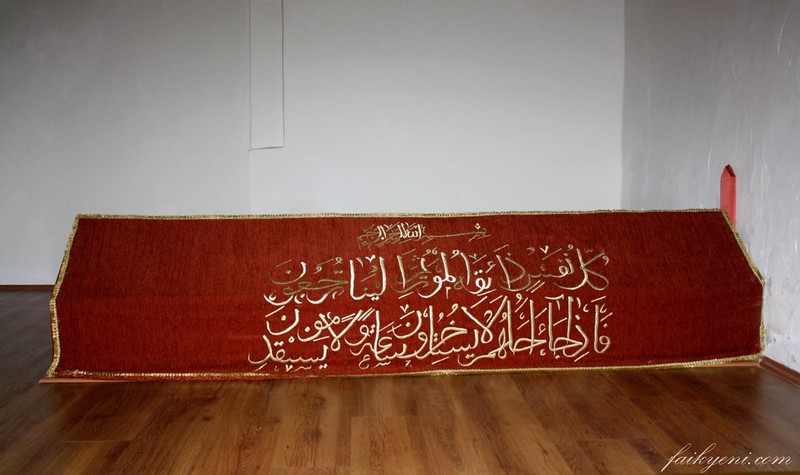 بسم الله الرحمن الرحيم
كل نفس ذائقة الموت ثم الينا ترجعون
فاذا جاء اجلهم لا يستأخرون ساعة ولا يستقدمون
faikyeni.com